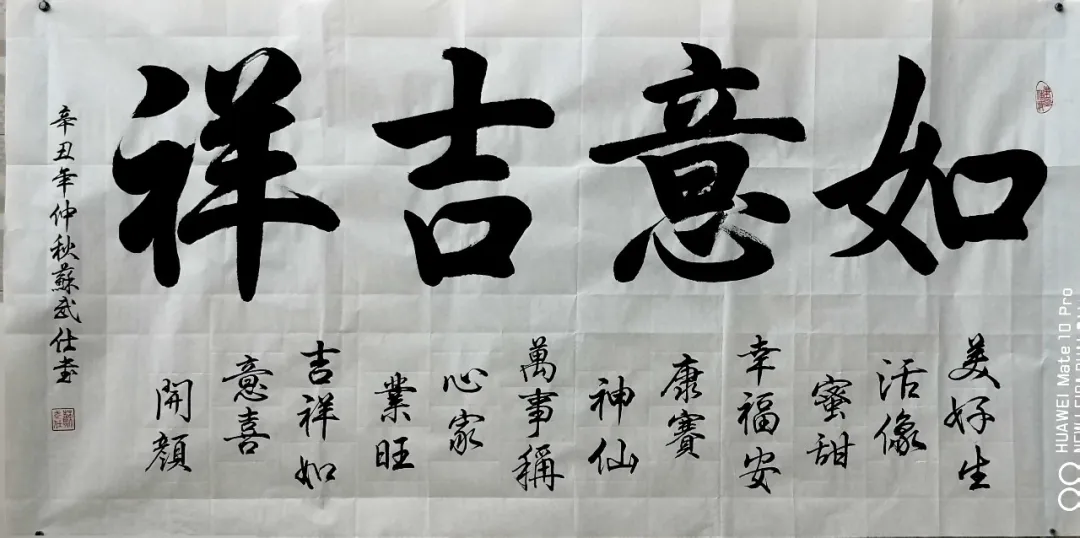 如意吉祥
美好生
活像
蜜甜
幸福安
康賽
神仙
萬事稱
心家
業旺
吉祥如
意喜
開顏
辛丑年仲秋蘇武仕書
HUAWEI Mate 10 Pro